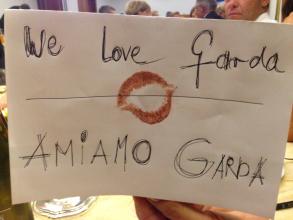 We Love Garda
AMiAMO GARDA